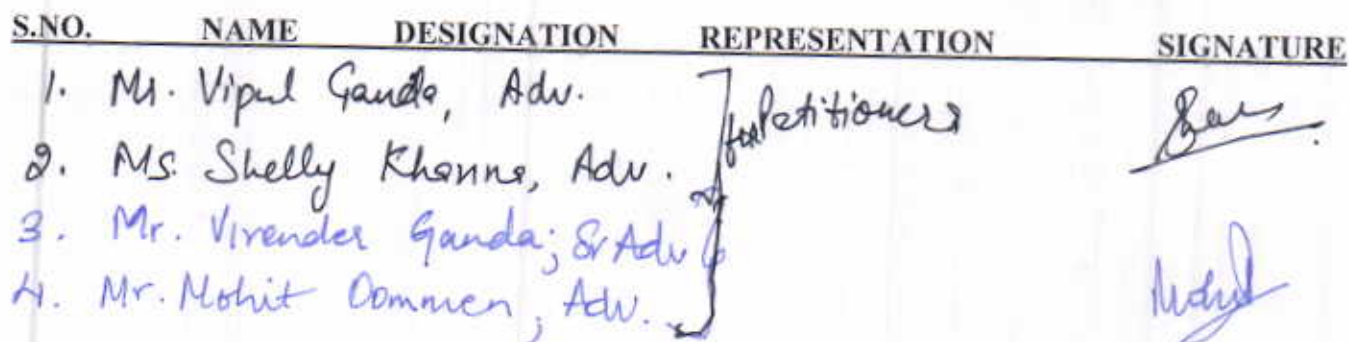 S.NO. NAME DESIGNATION REPRESENTATION SIGNATURE
1. Mr. Vipul Ganda, Adv. for Petitioners
2. Ms. Shelly Khanna, Adv.
3. Mr. Virender Ganda; Sr Adv
4. Mr. Mohit Oommen, Adv. Mohit